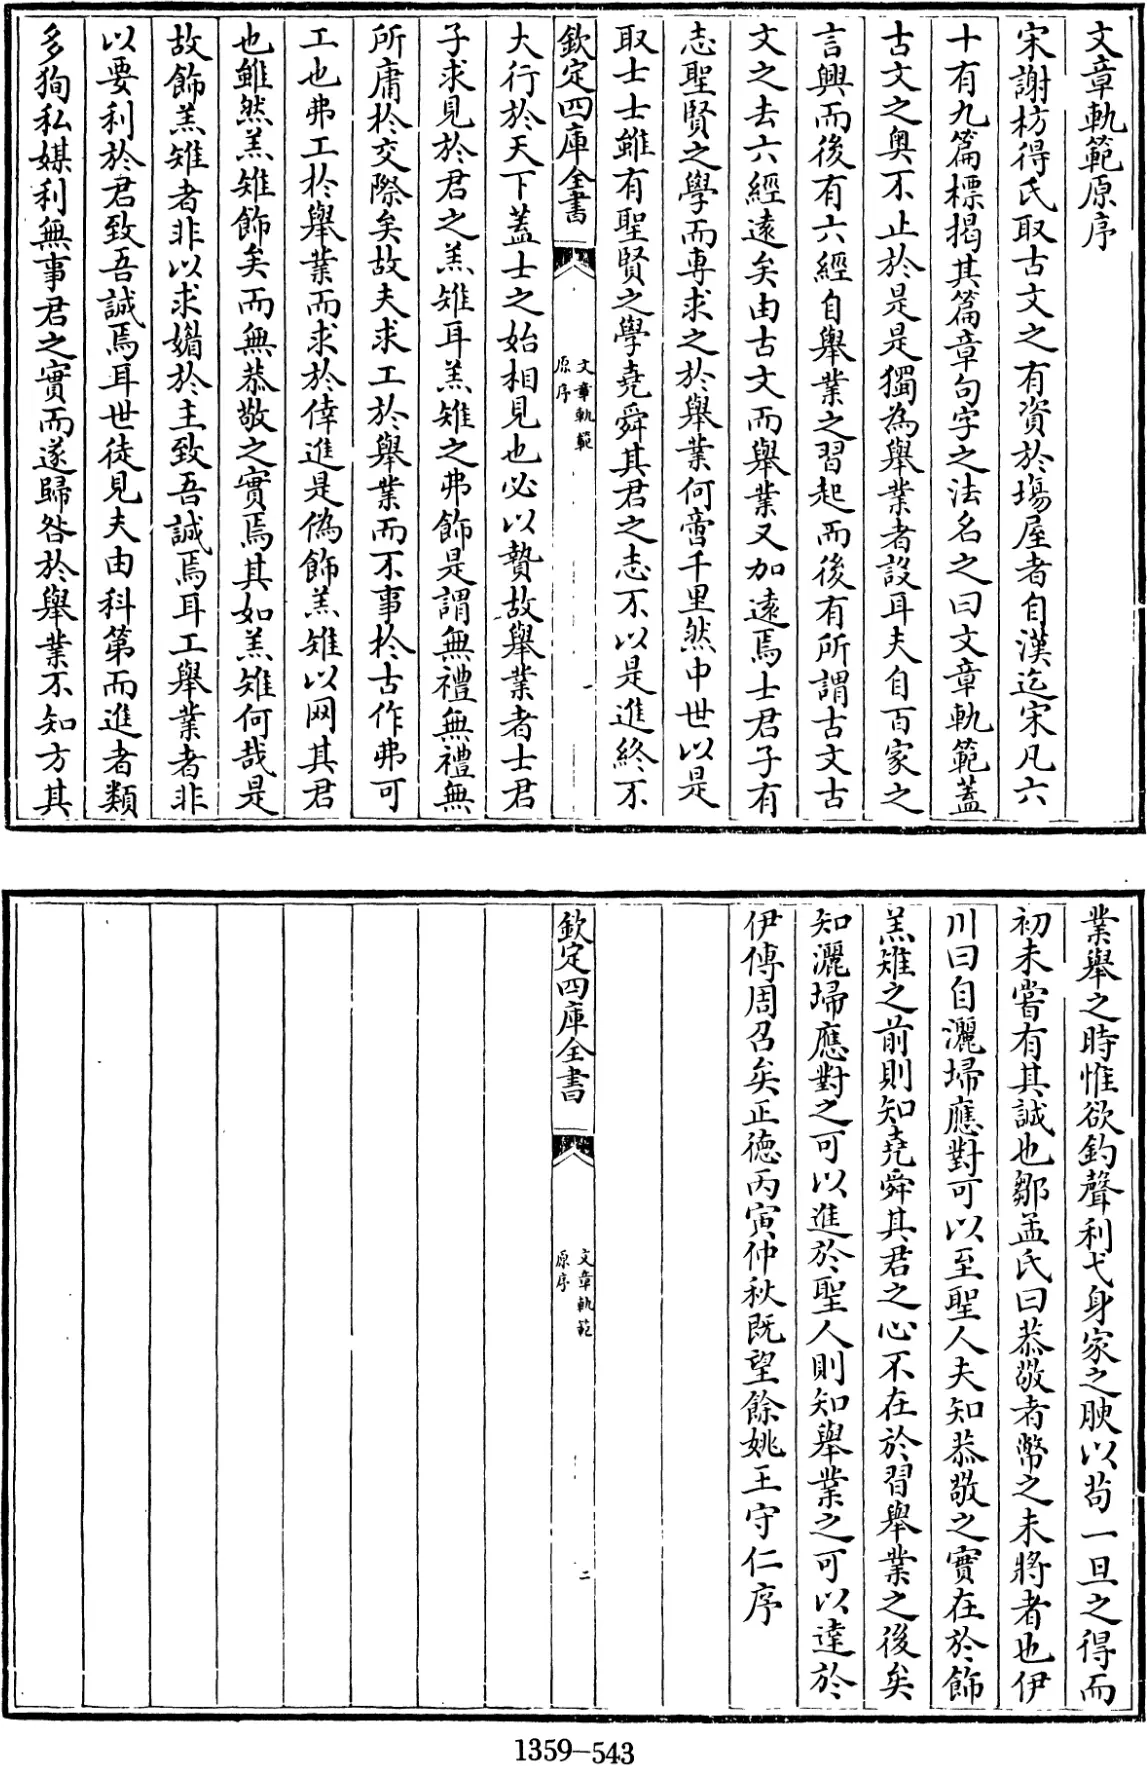 文章軌範原序
宋謝枋得氏取古文之有資於塲屋者自漢迄宋凡六
十有九篇標揭其篇章句字之法名之曰文章軌範蓋
古文之奥不止於是是獨為舉業者設耳夫自百家之
言興而後有六經自舉業之習起而後有所謂古文古
文之去六經遠矣由古文而舉業又加遠焉士君子有
志聖賢之學而専求之於舉業何啻千里然中世以是
取士士雖有聖賢之學堯舜其君之志不以是進終不
欽定四庫全書
文章軌範
原序
一
大行於天下蓋士之始相見也必以贄故舉業者士君
子求見於君之羔雉耳羔雉之弗飾是謂無禮無禮無
所庸於交際矣故夫求工於舉業而不事於古作弗可
工也弗工於舉業而求於倖進是偽飾羔雉以罔其君
也雖然羔雉飾矣而無恭敬之實焉其如羔雉何哉是
故飾羔雉者非以求媚於主致吾誠焉耳工舉業者非
以要利於君致吾誠焉耳世徒見夫由科第而進者類
多狥私媒利無事君之實而遂歸咎於舉業不知方其
業舉之時惟欲釣聲利弋身家之腴以茍一旦之得而
初未嘗有其誠也鄒孟氏曰恭敬者幣之未將者也伊
川曰自灑掃應對可以至聖人夫知恭敬之實在於飾
羔雉之前則知堯舜其君之心不在於習舉業之後矣
知灑掃應對之可以進於聖人則知舉業之可以達於
伊傅周召矣正徳丙寅仲秋既望餘姚王守仁序
欽定四庫全書
文章軌範
原序
二
1359-543